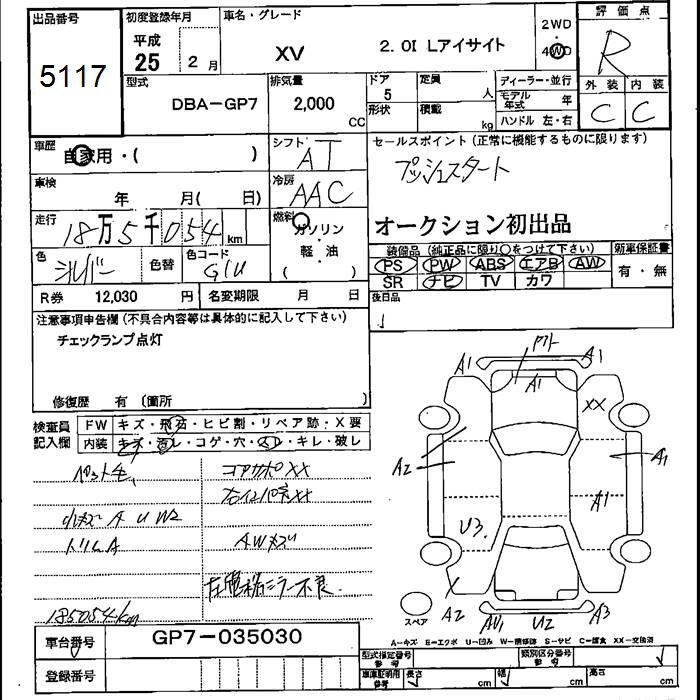 出品番号
5117
初度登録年月
平成
25 2 月
車名・グレード
XV 2.0I Lアイサイト
2WD
4WD
評価点
R
外装 内装
C C
型式
DBA-GP7
排気量
2,000 CC
ドア
5
定員
人
形状
積載
kg
ディーラー・並行
モデル年式 年
ハンドル 左・右
車歴
自家用・( )
シフト
AT
セールスポイント (正常に機能するものに限ります)
プッシュスタート
車検
年 月( 日)
冷房
AAC
走行
18万5千054 km
燃料
ガソリン
・
軽・油
( )
オークション初出品
色
シルバー
色替
色コード
G1U
装備品 (純正品に限り○をつけて下さい)
PS PW ABS エアB AW
SR ナビ TV カワ
新車保証書
有・無
R券 12,030 円
名変期限 月 日
後日品
注意事項申告欄 (不具合内容等は具体的に記入して下さい)
チェックランプ点灯
修復歴 有 (箇所 )
検査員記入欄
FW キズ・飛石・ヒビ割・リペア跡・X要
内装 キズ・汚レ・コゲ・穴・スレ・キレ・破レ
ペット毛
コアサポXX
右インパネXX
小キズ A U W2
トリムA
AWキズ
左電格ミラー不良
185054km
A1
A1
A1
XX
A2
A1
A1
U3.
A2
AU1
U2
A3
スペア
A-キズ E-エクボ U-凹み W-補修跡 S-サビ C-腐食 XX-交換済
車台番号
GP7-035030
登録番号
型式指定番号
参考
類別区分番号
参考
車庫証明用
参考
長さ cm
幅 cm
高さ cm